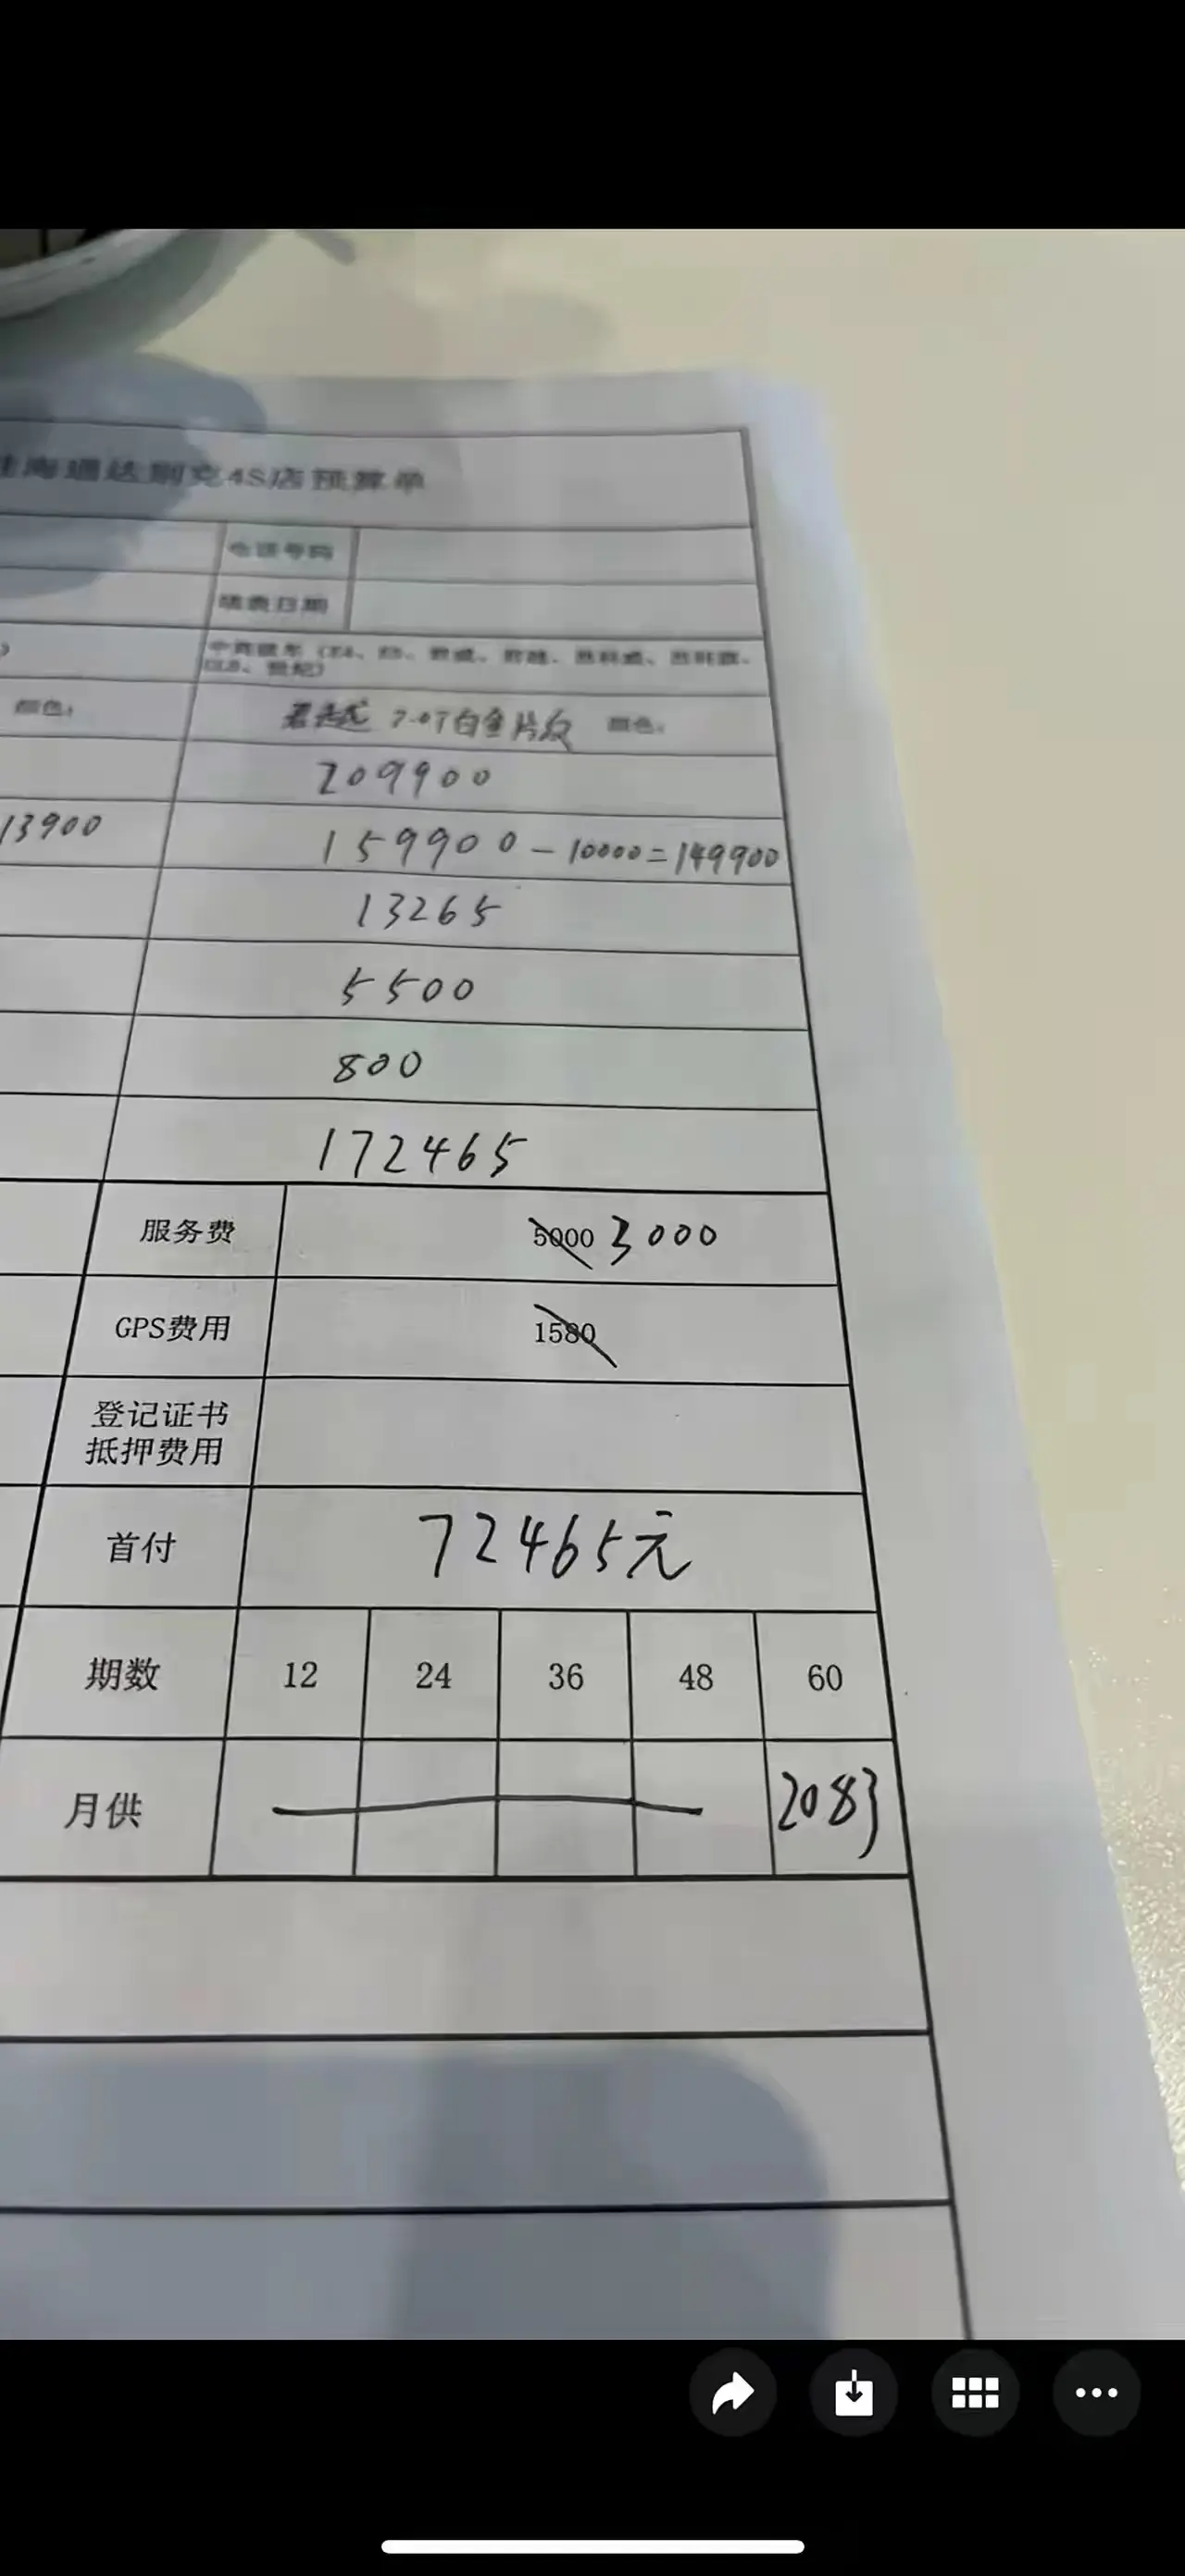 海通达别克4S店预算单
电话号码
填表日期
颜色:
君越 2.0T白金片反 颜色:
209900
13900
159900-10000=149900
13265
5500
800
172465
服务费 5000 3000
GPS费用 1580
登记证书
抵押费用
首付 72465元
期数 12 24 36 48 60
月供 2083